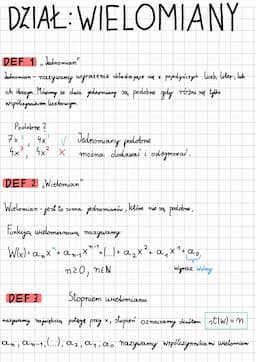 DZIAŁ: WIELOMIANY
DEF 1 „Jednomian"
Jednomian - nazywamy wyrażenie składające się z pojedynczych liczb, liter, lub
ich iloczyn. Mówimy że dwa jednomiany są podobne gdy różni się tylko
współczynnikiem liczbowym.
Podobne?
7x³, 4x³ V
4x³, 4x² X
Jednomiany podobne
można dodawać i odejmować.
DEF 2 „Wielomian"
Wielomian - jest to suma jednomianów, które nie są podobne.
Funkcją wielomianową nazywamy:
W(x) = aₙxⁿ + aₙ₋₁xⁿ⁻¹ + (...) + a₂x² + a₁x¹ + a₀
n≥0, n∈N
wyraz wolny
DEF 3 Stopniem wielomianu
nazywamy największą potęgę przy x, stopień oznaczamy skrótem st(w) = n
aₙ, aₙ₋₁, (...), a₂, a₁, a₀ nazywamy współczynnikami wielomianu